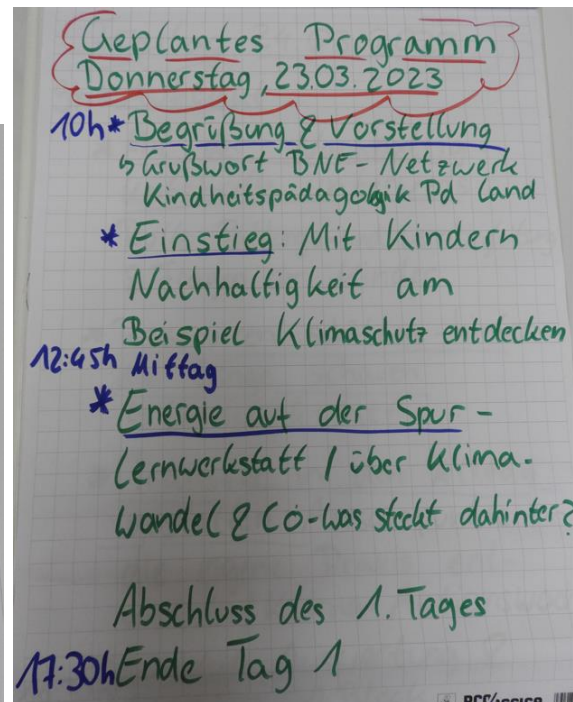 Geplantes Programm
Donnerstag, 23.03.2023
10h * Begrüßung & Vorstellung
↳ Grußwort BNE-Netzwerk
Kindheitspädagogik Pd Land
* Einstieg: Mit Kindern
Nachhaltigkeit am
Beispiel Klimaschutz entdecken
12:45h Mittag
* Energie auf der Spur -
Lernwerkstatt / über Klima-
wandel & Co - was steckt dahinter?
Abschluss des 1. Tages
17:30h Ende Tag 1